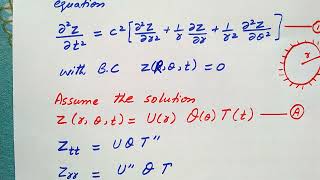 equation
∂²z/∂t² = c² [ ∂²z/∂r² + 1/r ∂z/∂r + 1/r² ∂²z/∂θ² ]
r
with B.C z(R,θ,t) = 0
Assume the solution
z(r,θ,t) = U(r) θ(θ) T(t) — (A)
Z_tt = U θ T″
Z_rr = U″ θ T